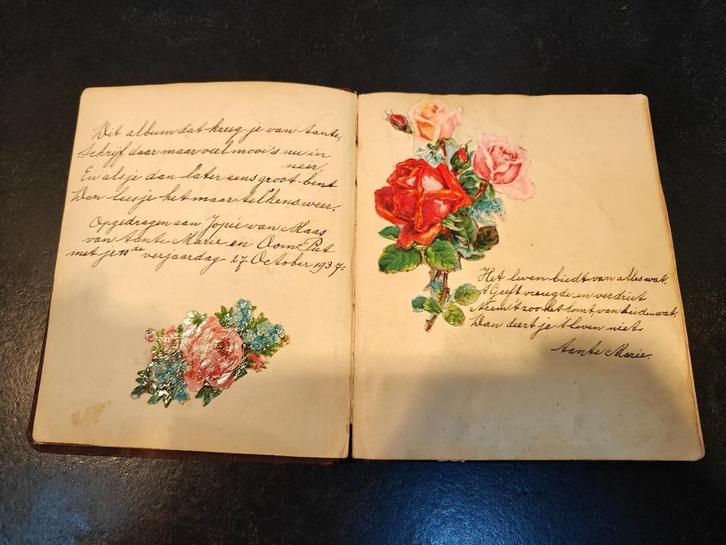 Dit album dat kreeg je van tante,
Schrijf daar maar veel mooi's nu in
neer,
En als je dan later eens groot bent
Dan lees je het maar telkens weer.
Opgedragen aan Jopie van Maas
van tante Marie en Oom Piet
met je 10de verjaardag 27 October 1937
Het leven biedt van alles wat,
't Geeft vreugde en verdriet
Neem 't zoo het komt van beiden wat,
Dan deert je 't leven niet.
tante Marie.